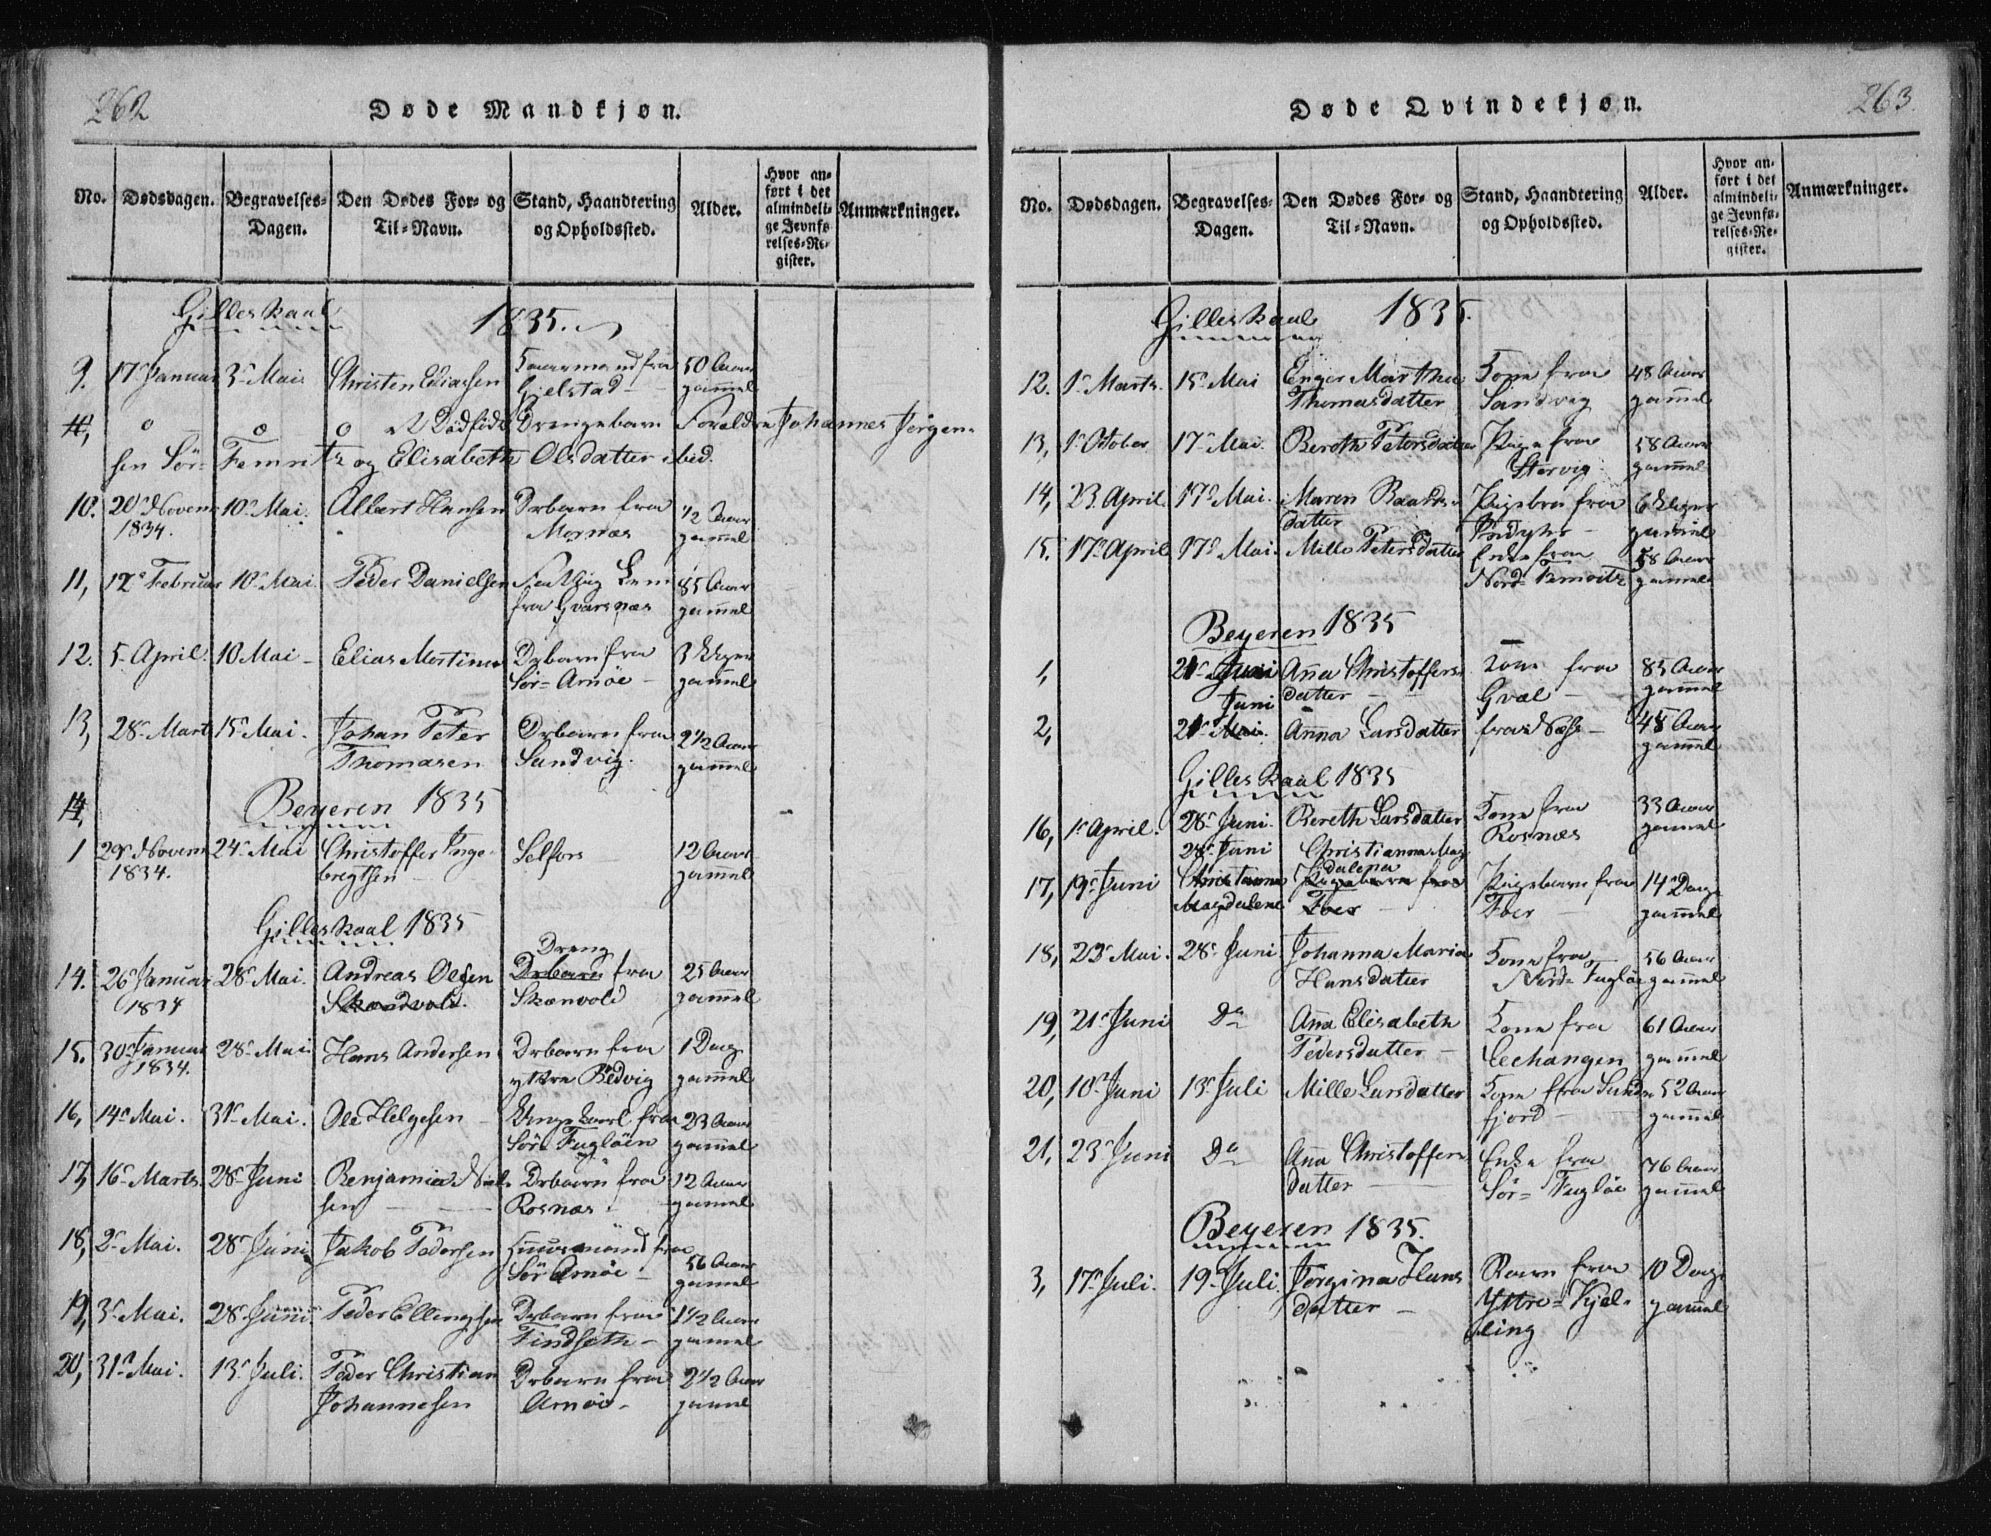 262
Døde Mandkjøn.
No. Dødsdagen. Begravelses-Dagen. Den Dødes For- og Til-Navn. Stand, Haandtering og Opholdssted. Alder. Hvor anført i det almindelige Jevnførelses-Register. Anmærkninger.
Gilleskaal 1835.
9. 17de Januar 3de Mai Christen Eliassen fra Gjelstad 50 Aar gammel
o o o Dødfødt Drengebarn Forældre Johannes Jørgen-
sen Sør-Femris og Elisabeth Olsdatter ibid.
10. 20de Novem 1834. 10de Mai. Albert Hansen Drbarn fra Mornæs 1/2 Aar gammel
11, 12te Februar 10de Mai. Peder Danielsen Fattig Lem fra Gvarsnæs 85 Aar gammel
12. 5 April. 10 Mai - Elias Mortinus Drbarn fra Sör-Arnöe - 3 Uger gammel
13, 28de Mart 15de Mai. Johan Peter Thomasen Drbarn fra Sandvig. 2 1/2 Aar gammel
14,
Beyeren 1835
1 29de Novem 1834. 24de Mai Christoffer Ingebregtsen Selfors 12 Aar gammel
Gilleskaal 1835
14. 26de Januar 1834 28de Mai. Andreas Olsen Skandvold. Dreng Drbarn fra Skænvold 25 Aar gammel
15. 30de Januar 1834. 28de Mai Hans Andersen Drbarn fra yttre Bedvig 1 Dag gammel
16, 14de Mai. 31de Mai. Ole Helgesen Ungkarl fra Sör Fuglöen 23 Aar gammel
17, 16de Marts. 28de Juni Benjamin Nielsen Drbarn fra Rosnæs. 12 Aar gammel
18, 2de Mai. 28de Juni Jakob Pedersen Huusmand fra Sör Arnöe 56 Aar gammel
19, 3de Mai. 28de Juni Peder Ellingsen Drbarn fra Findseth 1 1/2 Aar gammel
20, 31te Mai. 13de Juli. Peder Christian Johannesen Drbarn fra Arnöe 2 1/2 Aar gammel
263.
Døde Qvindekjøn.
No. Dødsdagen. Begravelses-Dagen. Den Dødes For- og Til-Navn. Stand, Haandtering og Opholdssted. Alder. Hvor anført i det almindelige Jevnførelses-Register. Anmærkninger.
Gilleskaal 1835.
12. 1de Marts. 15de Mai Enger Martha Thomasdatter Kone fra Sandvig 48 Aar gammel
13, 1de October 17de Mai. Bereth Petersdatter Pige fra Storvig. 58 Aar gammel
14, 23 April. 17de Mai. Maren Baardsdatter Pigebrn fra 6 Uger gammel
15. 17de April 17de Mai. Mille Petersdatter Enke fra Nord 58 Aar gammel
Beyeren 1835
1, 21de Juni Juni Anna Christoffersdatter Kone fra Gvæl 85 Aar gammel
2, 21de Mai. Anna Larsdatter fra 48 Aar gammel
Gilleskaal 1835
16, 1de April. 28de Juni. Bereth Larsdatter Kone fra Rosnæs 33 Aar gammel
17, 19de Juni 28de Juni Christianna Magdalene Christianna Magdalena Pigebarn fra Foer Pigebarn fra Foer 14 Dage gammel
18, 23de Mai. 28de Juni Johanna Maria Hansdatter Kone fra Nord-Fuglöe 56 Aar gammel
19, 21de Juni Do Anna Elisabeth Pedersdatter Kone fra Lechangen 61 Aar gammel
20, 10de Juni 13de Juli Mille Larsdatter Kone fra Sundsfjord 52 Aar gammel
21, 23de Juni Do Ana Christoffersdatter Enke fra Sör-Fuglöe 76 Aar gammel
Beyeren 1835.
3, 17de Juli. 19de Juli Jorgina Hansdatter Barn fra Yttre-Kjelling 10 Dage gammel